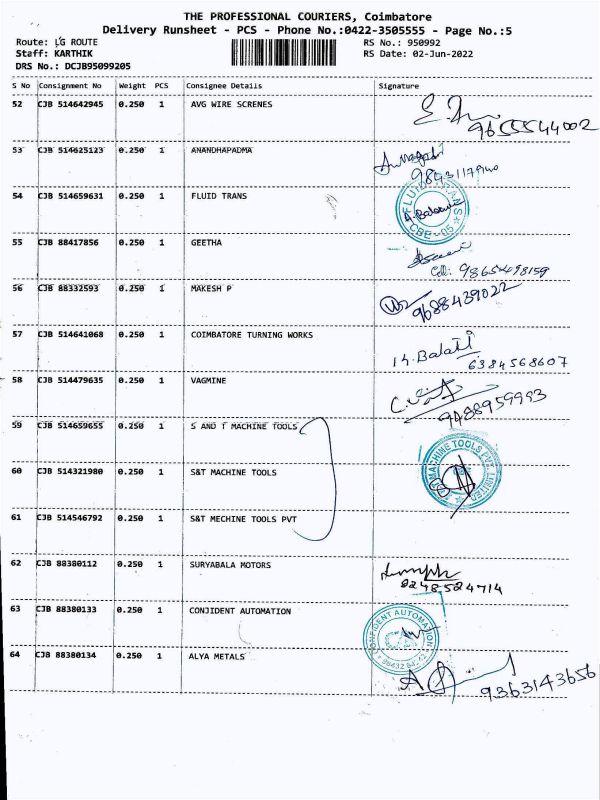 THE PROFESSIONAL COURIERS, Coimbatore
Delivery Runsheet - PCS - Phone No.:0422-3505555 - Page No.:5
Route: LG ROUTE
RS No.: 950992
Staff: KARTHIK
RS Date: 02-Jun-2022
DRS No.: DCJB95099205
S No Consignment No Weight PCS Consignee Details Signature
52 CJB 514642945 0.250 1 AVG WIRE SCRENES
9655544002
53 CJB 514625123 0.250 1 ANANDHAPADMA
54 CJB 514659631 0.250 1 FLUID TRANS
FLUID TRANS
CBE-05
55 CJB 88417856 0.250 1 GEETHA
Cell: 9865498159
56 CJB 88332593 0.250 1 MAKESH P
9688439022
57 CJB 514641068 0.250 1 COIMBATORE TURNING WORKS
Balaji
6384568607
58 CJB 514479635 0.250 1 VAGMINE
9488959993
59 CJB 514659655 0.250 1 S AND T MACHINE TOOLS
60 CJB 514321980 0.250 1 S&T MACHINE TOOLS
MACHINE TOOLS PVT. LIMITED
61 CJB 514546792 0.250 1 S&T MECHINE TOOLS PVT
62 CJB 88380112 0.250 1 SURYABALA MOTORS
9248524714
63 CJB 88380133 0.250 1 CONJIDENT AUTOMATION
CONFIDENT AUTOMATION
64 CJB 88380134 0.250 1 ALYA METALS
9363143656